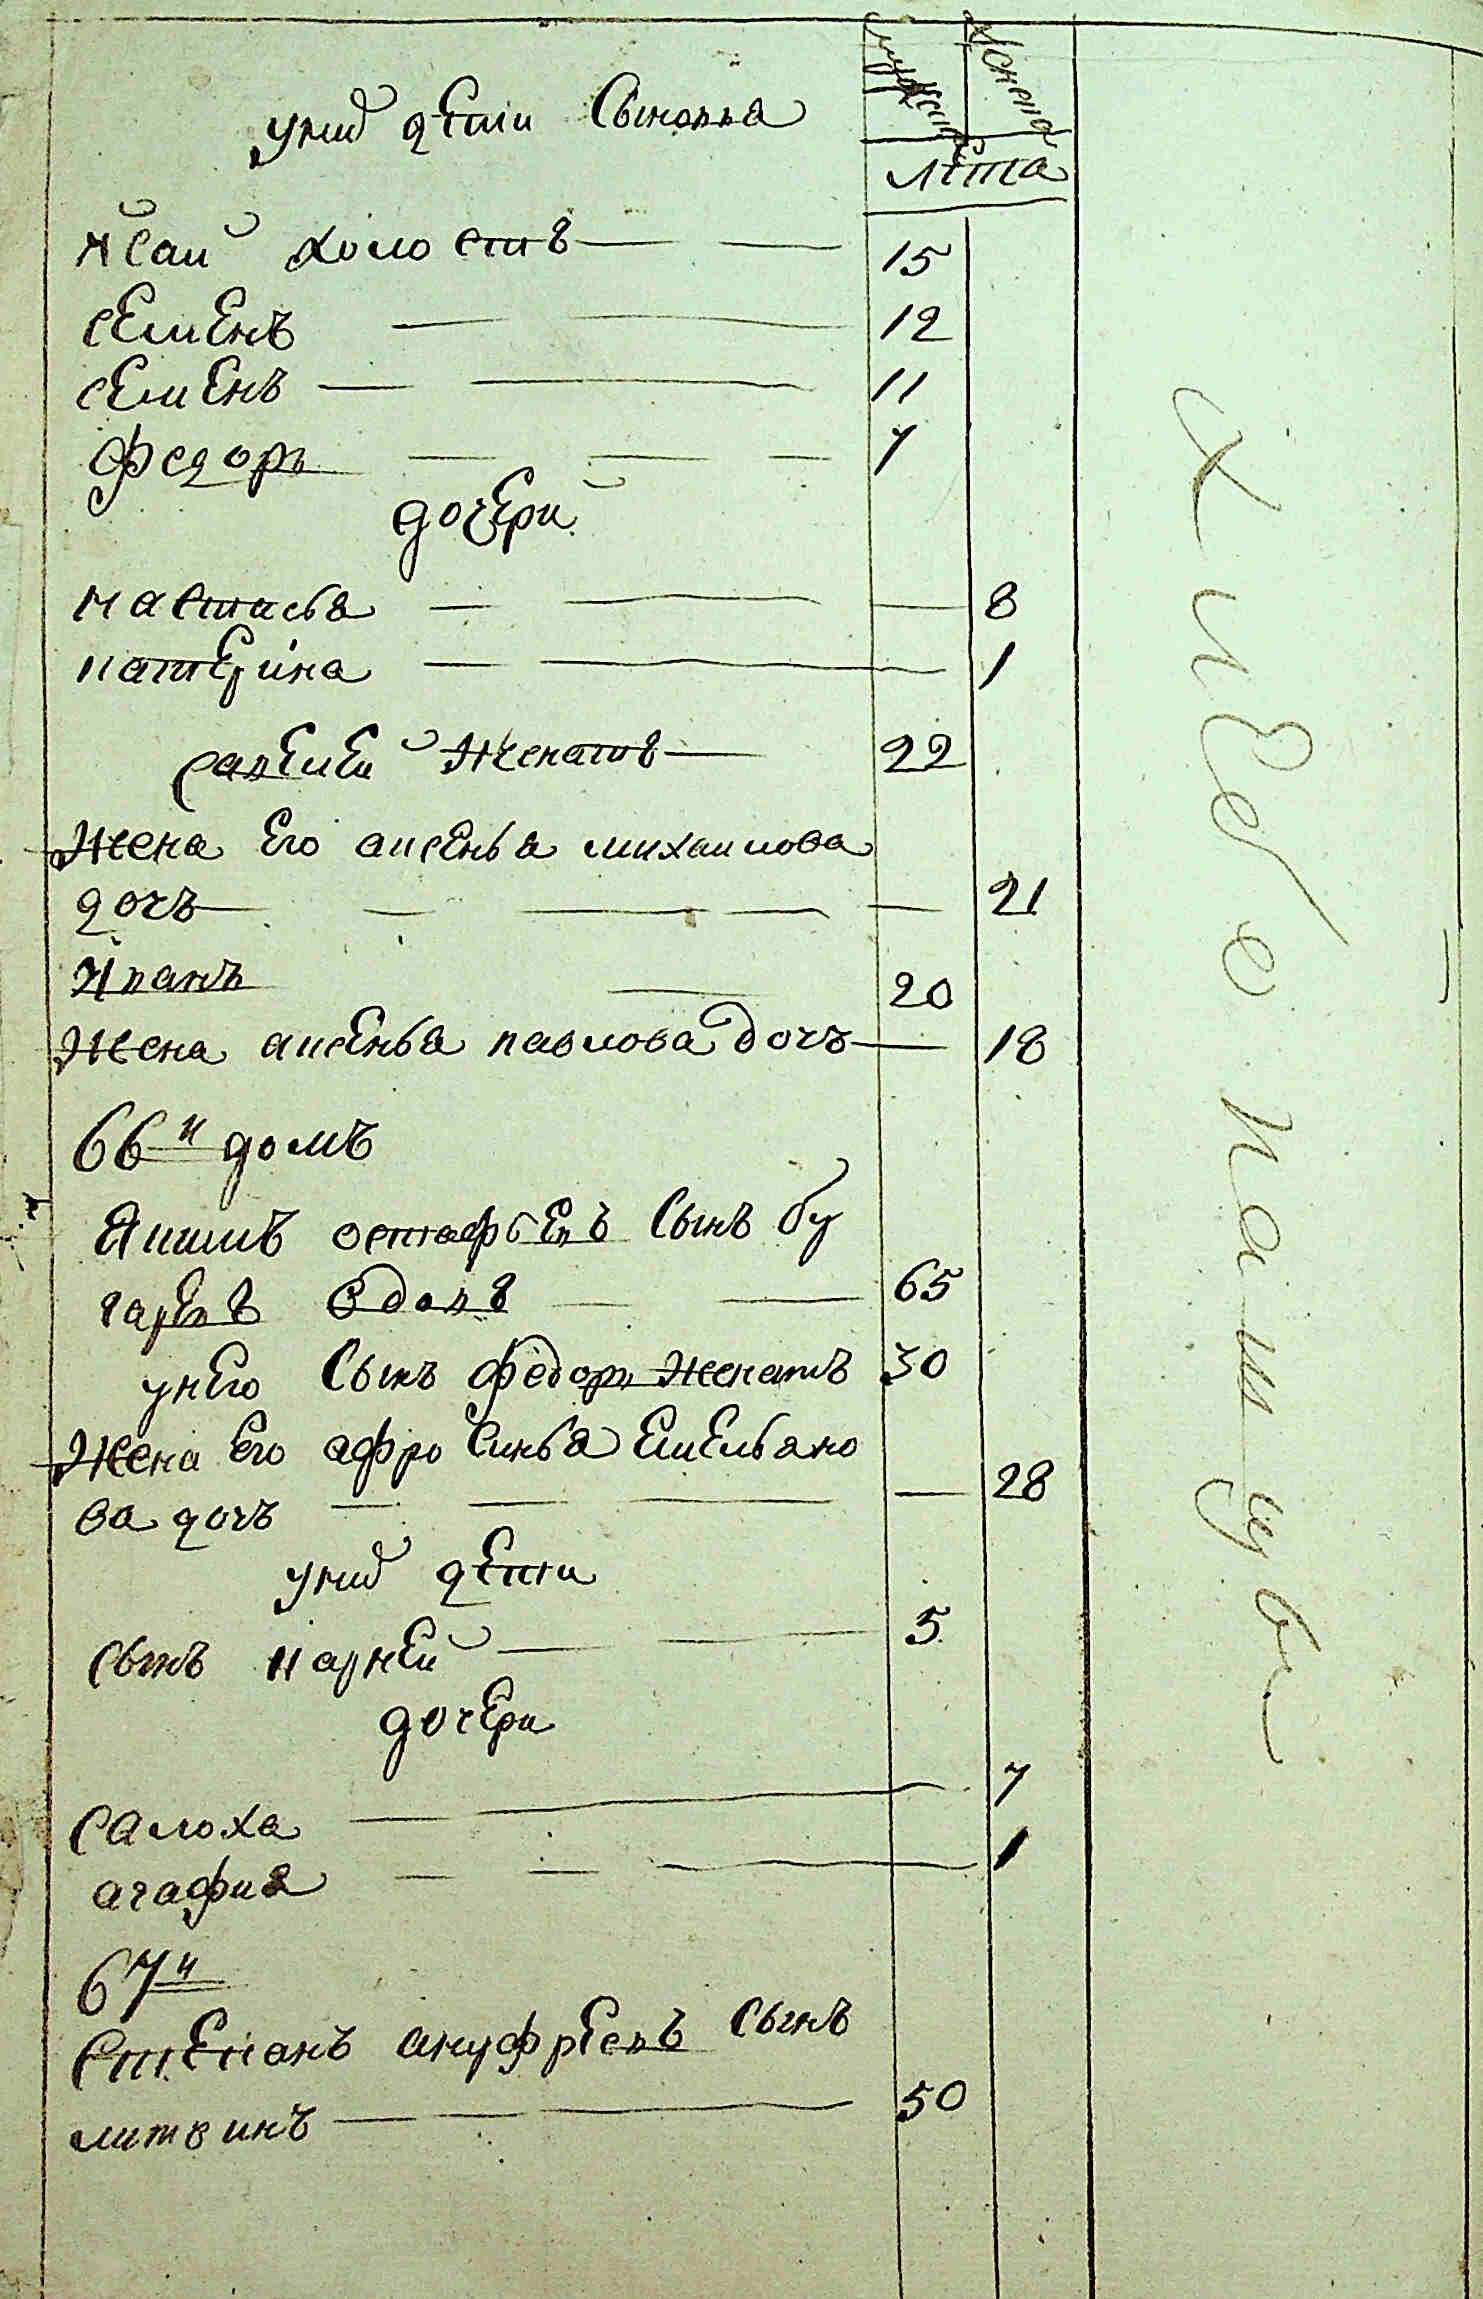 мужеска женска
уних дети Сыновья
лета
Исай холостъ 15
семенъ 12
семенъ 11
федоръ 7
дочери
настасья 8
катерина 1
савелей женатъ 22
жена Его аксенья михаилова
дочъ 21
Иванъ 20
жена аксенья павлова дочъ 18
66й домъ
Якимъ остафьевъ Сынъ бу
гаревъ вдовъ 65
унего Сынъ федоръ женатъ 30
жена Его афросинья Емельяно
ва дочъ 28
уних дети
сынъ карней 5
дочери
салоха 7
агафия 1
67й
Степанъ ануфрЕевъ Сынъ
литвинъ 50
хлебопашцы